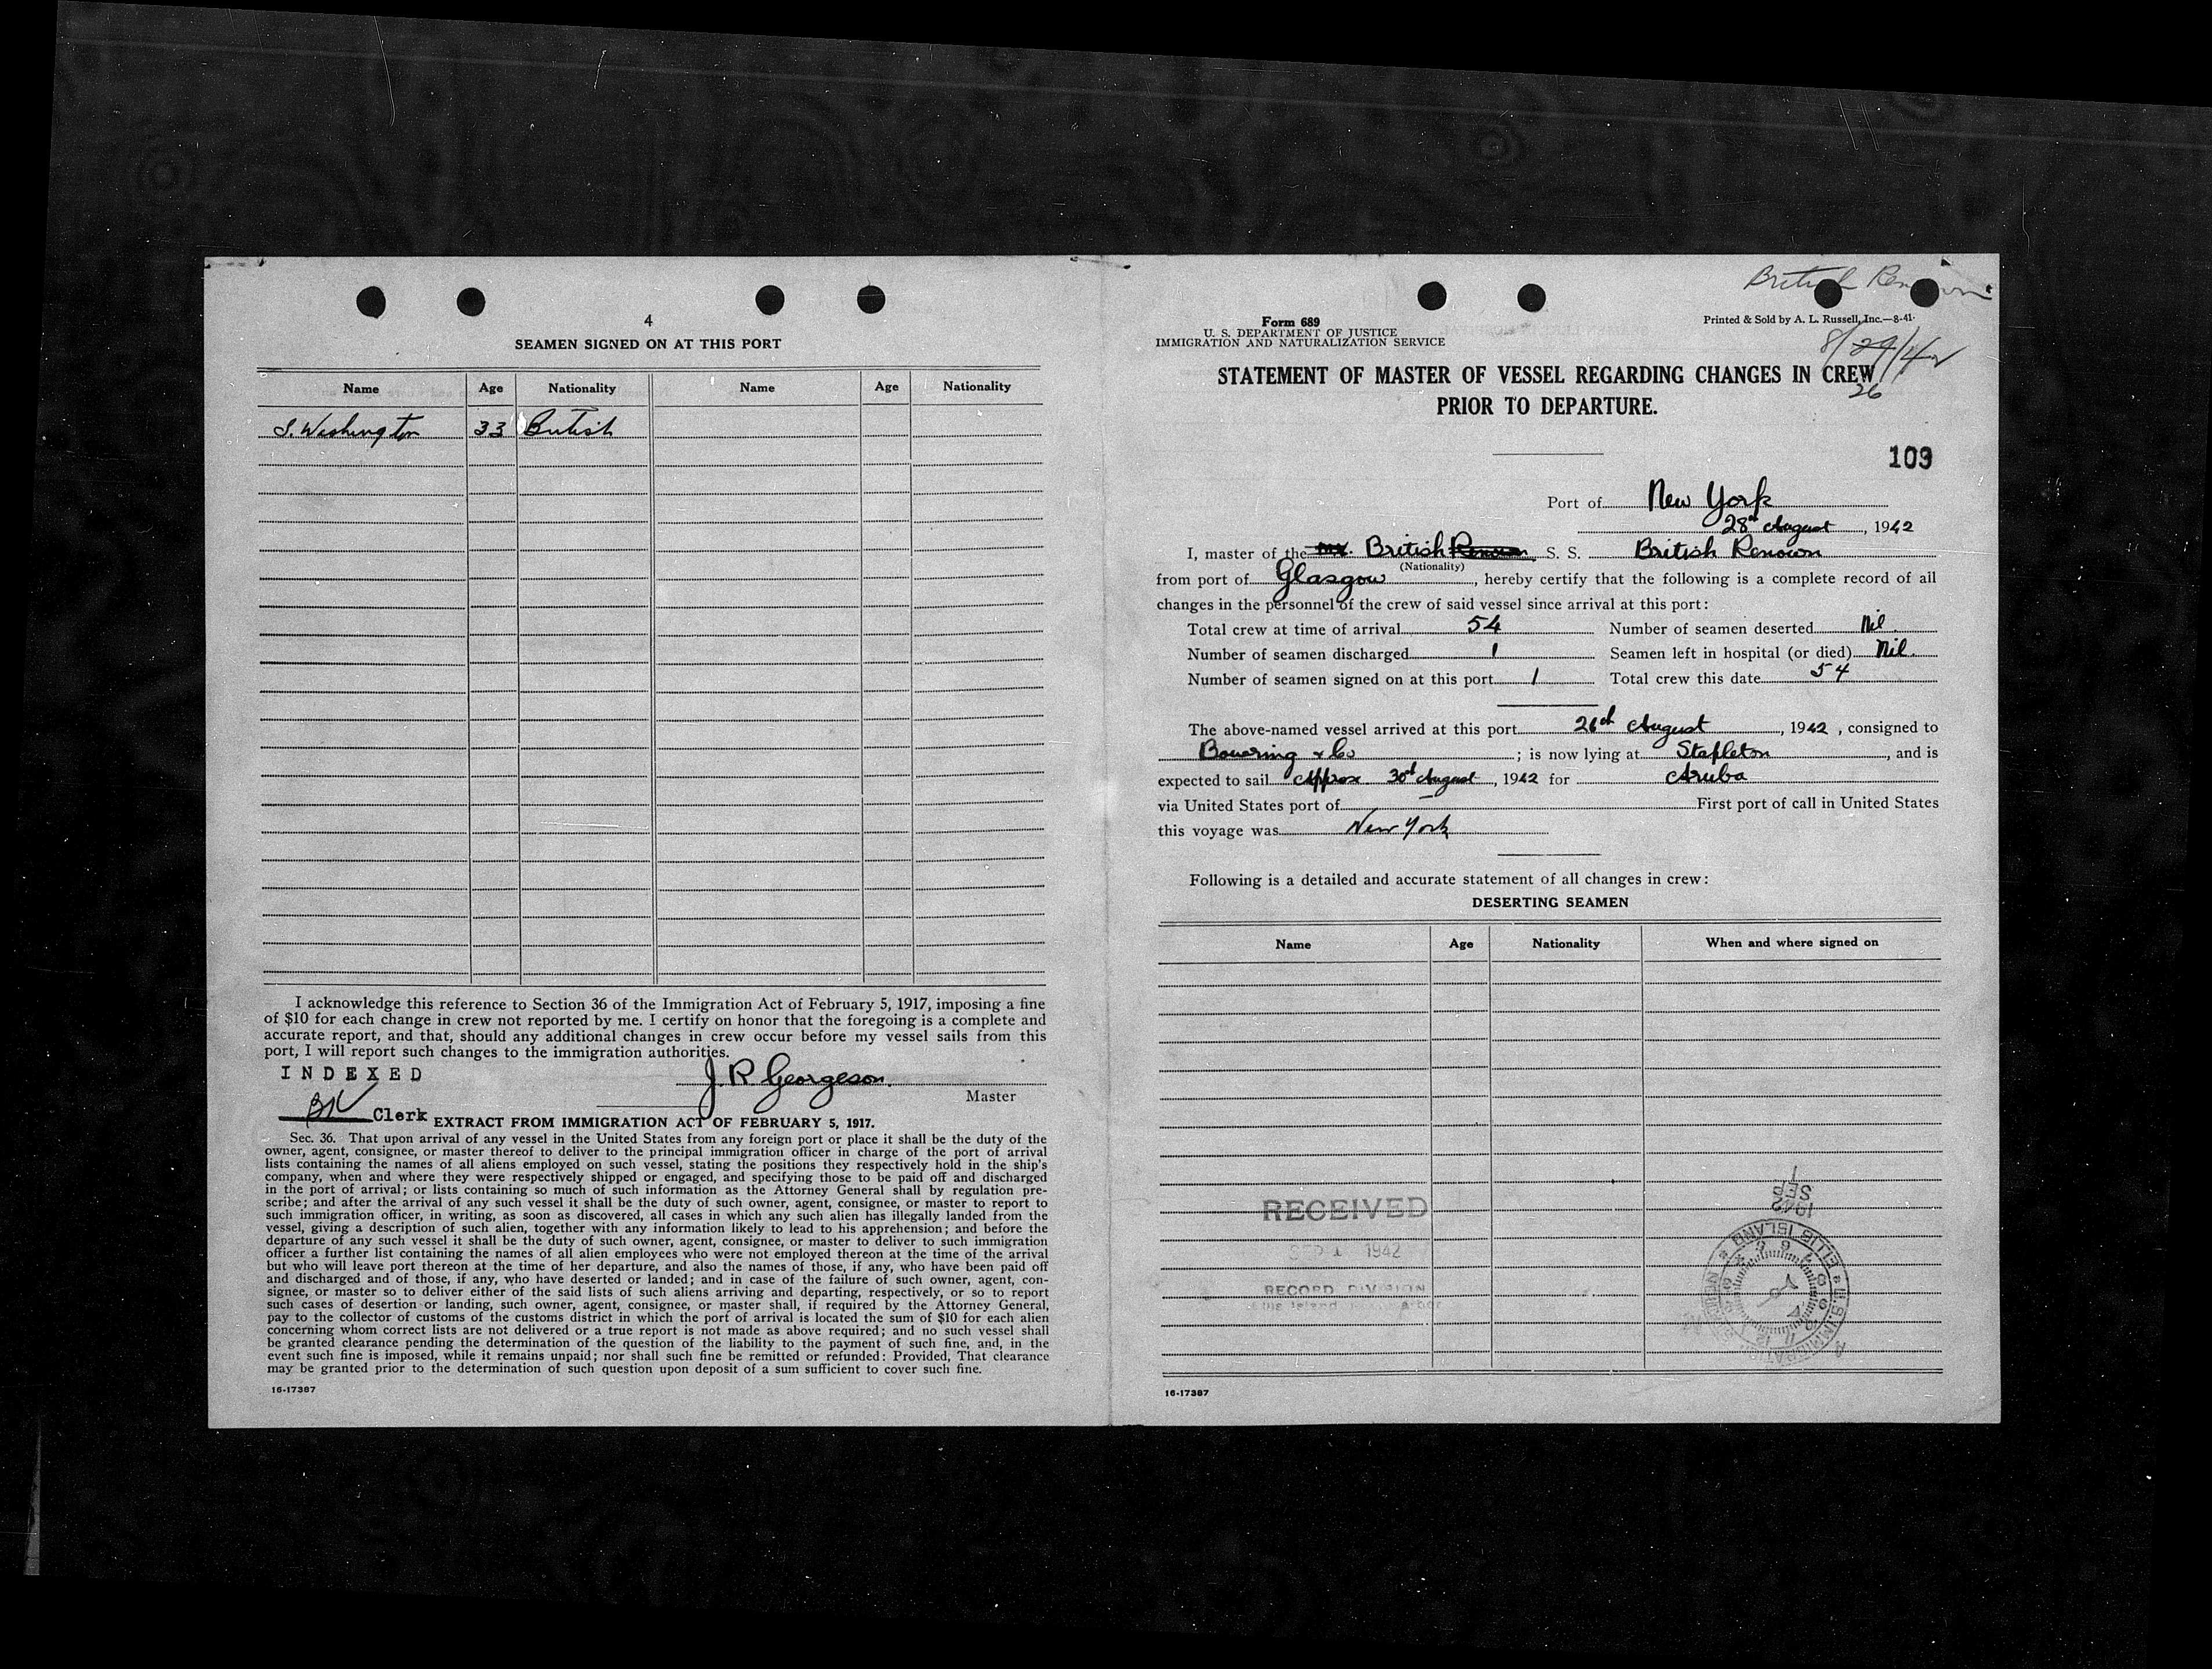 4
SEAMEN SIGNED ON AT THIS PORT
Name Age Nationality Name Age Nationality
S. Washington 33 British
I acknowledge this reference to Section 36 of the Immigration Act of February 5, 1917, imposing a fine
of $10 for each change in crew not reported by me. I certify on honor that the foregoing is a complete and
accurate report, and that, should any additional changes in crew occur before my vessel sails from this
port, I will report such changes to the immigration authorities.
INDEXED
J. R Georgeson.
Master
Clerk
EXTRACT FROM IMMIGRATION ACT OF FEBRUARY 5, 1917.
Sec. 36. That upon arrival of any vessel in the United States from any foreign port or place it shall be the duty of the
owner, agent, consignee, or master thereof to deliver to the principal immigration officer in charge of the port of arrival
lists containing the names of all aliens employed on such vessel, stating the positions they respectively hold in the ship's
company, when and where they were respectively shipped or engaged, and specifying those to be paid off and discharged
in the port of arrival; or lists containing so much of such information as the Attorney General shall by regulation pre-
scribe; and after the arrival of any such vessel it shall be the duty of such owner, agent, consignee, or master to report to
such immigration officer, in writing, as soon as discovered, all cases in which any such alien has illegally landed from the
vessel, giving a description of such alien, together with any information likely to lead to his apprehension; and before the
departure of any such vessel it shall be the duty of such owner, agent, consignee, or master to deliver to such immigration
officer a further list containing the names of all alien employees who were not employed thereon at the time of the arrival
but who will leave port thereon at the time of her departure, and also the names of those, if any, who have been paid off
and discharged and of those, if any, who have deserted or landed; and in case of the failure of such owner, agent, con-
signee, or master so to deliver either of the said lists of such aliens arriving and departing, respectively, or so to report
such cases of desertion or landing, such owner, agent, consignee, or master shall, if required by the Attorney General,
pay to the collector of customs of the customs district in which the port of arrival is located the sum of $10 for each alien
concerning whom correct lists are not delivered or a true report is not made as above required; and no such vessel shall
be granted clearance pending the determination of the question of the liability to the payment of such fine, and, in the
event such fine is imposed, while it remains unpaid; nor shall such fine be remitted or refunded: Provided, That clearance
may be granted prior to the determination of such question upon deposit of a sum sufficient to cover such fine.
16-17387
British Renown
Form 689
U. S. DEPARTMENT OF JUSTICE
IMMIGRATION AND NATURALIZATION SERVICE
Printed & Sold by A. L. Russell, Inc.—8-41
8/29/42
26
STATEMENT OF MASTER OF VESSEL REGARDING CHANGES IN CREW
PRIOR TO DEPARTURE.
109
Port of New York
28th August, 1942
I, master of the British Renown S. S. British Renown
(Nationality)
from port of Glasgow, hereby certify that the following is a complete record of all
changes in the personnel of the crew of said vessel since arrival at this port:
Total crew at time of arrival 54 Number of seamen deserted Nil
Number of seamen discharged 1 Seamen left in hospital (or died) Nil.
Number of seamen signed on at this port 1 Total crew this date 54
The above-named vessel arrived at this port 26th August, 1942, consigned to
Bowring & Co; is now lying at Stapleton, and is
expected to sail Approx 30th August, 1942 for Aruba
via United States port of — First port of call in United States
this voyage was New York
Following is a detailed and accurate statement of all changes in crew:
DESERTING SEAMEN
Name Age Nationality When and where signed on
RECEIVED
SEP 1 1942
RECORD DIVISION
1
SEP
1942
ELLIS ISLAND
16-17387